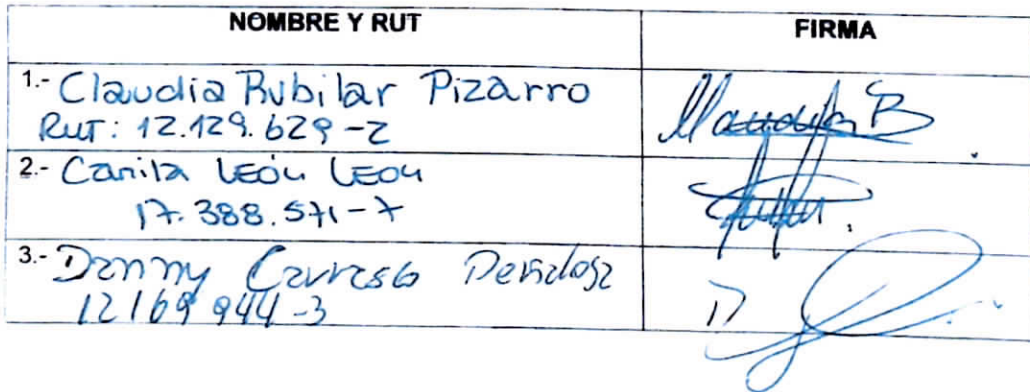 NOMBRE Y RUT FIRMA
1.- Claudia Rubilar Pizarro
RUT: 12.129.629-2
2.- Camila León León
17.388.571-7
3.- Danny Carrasco
12169944-3